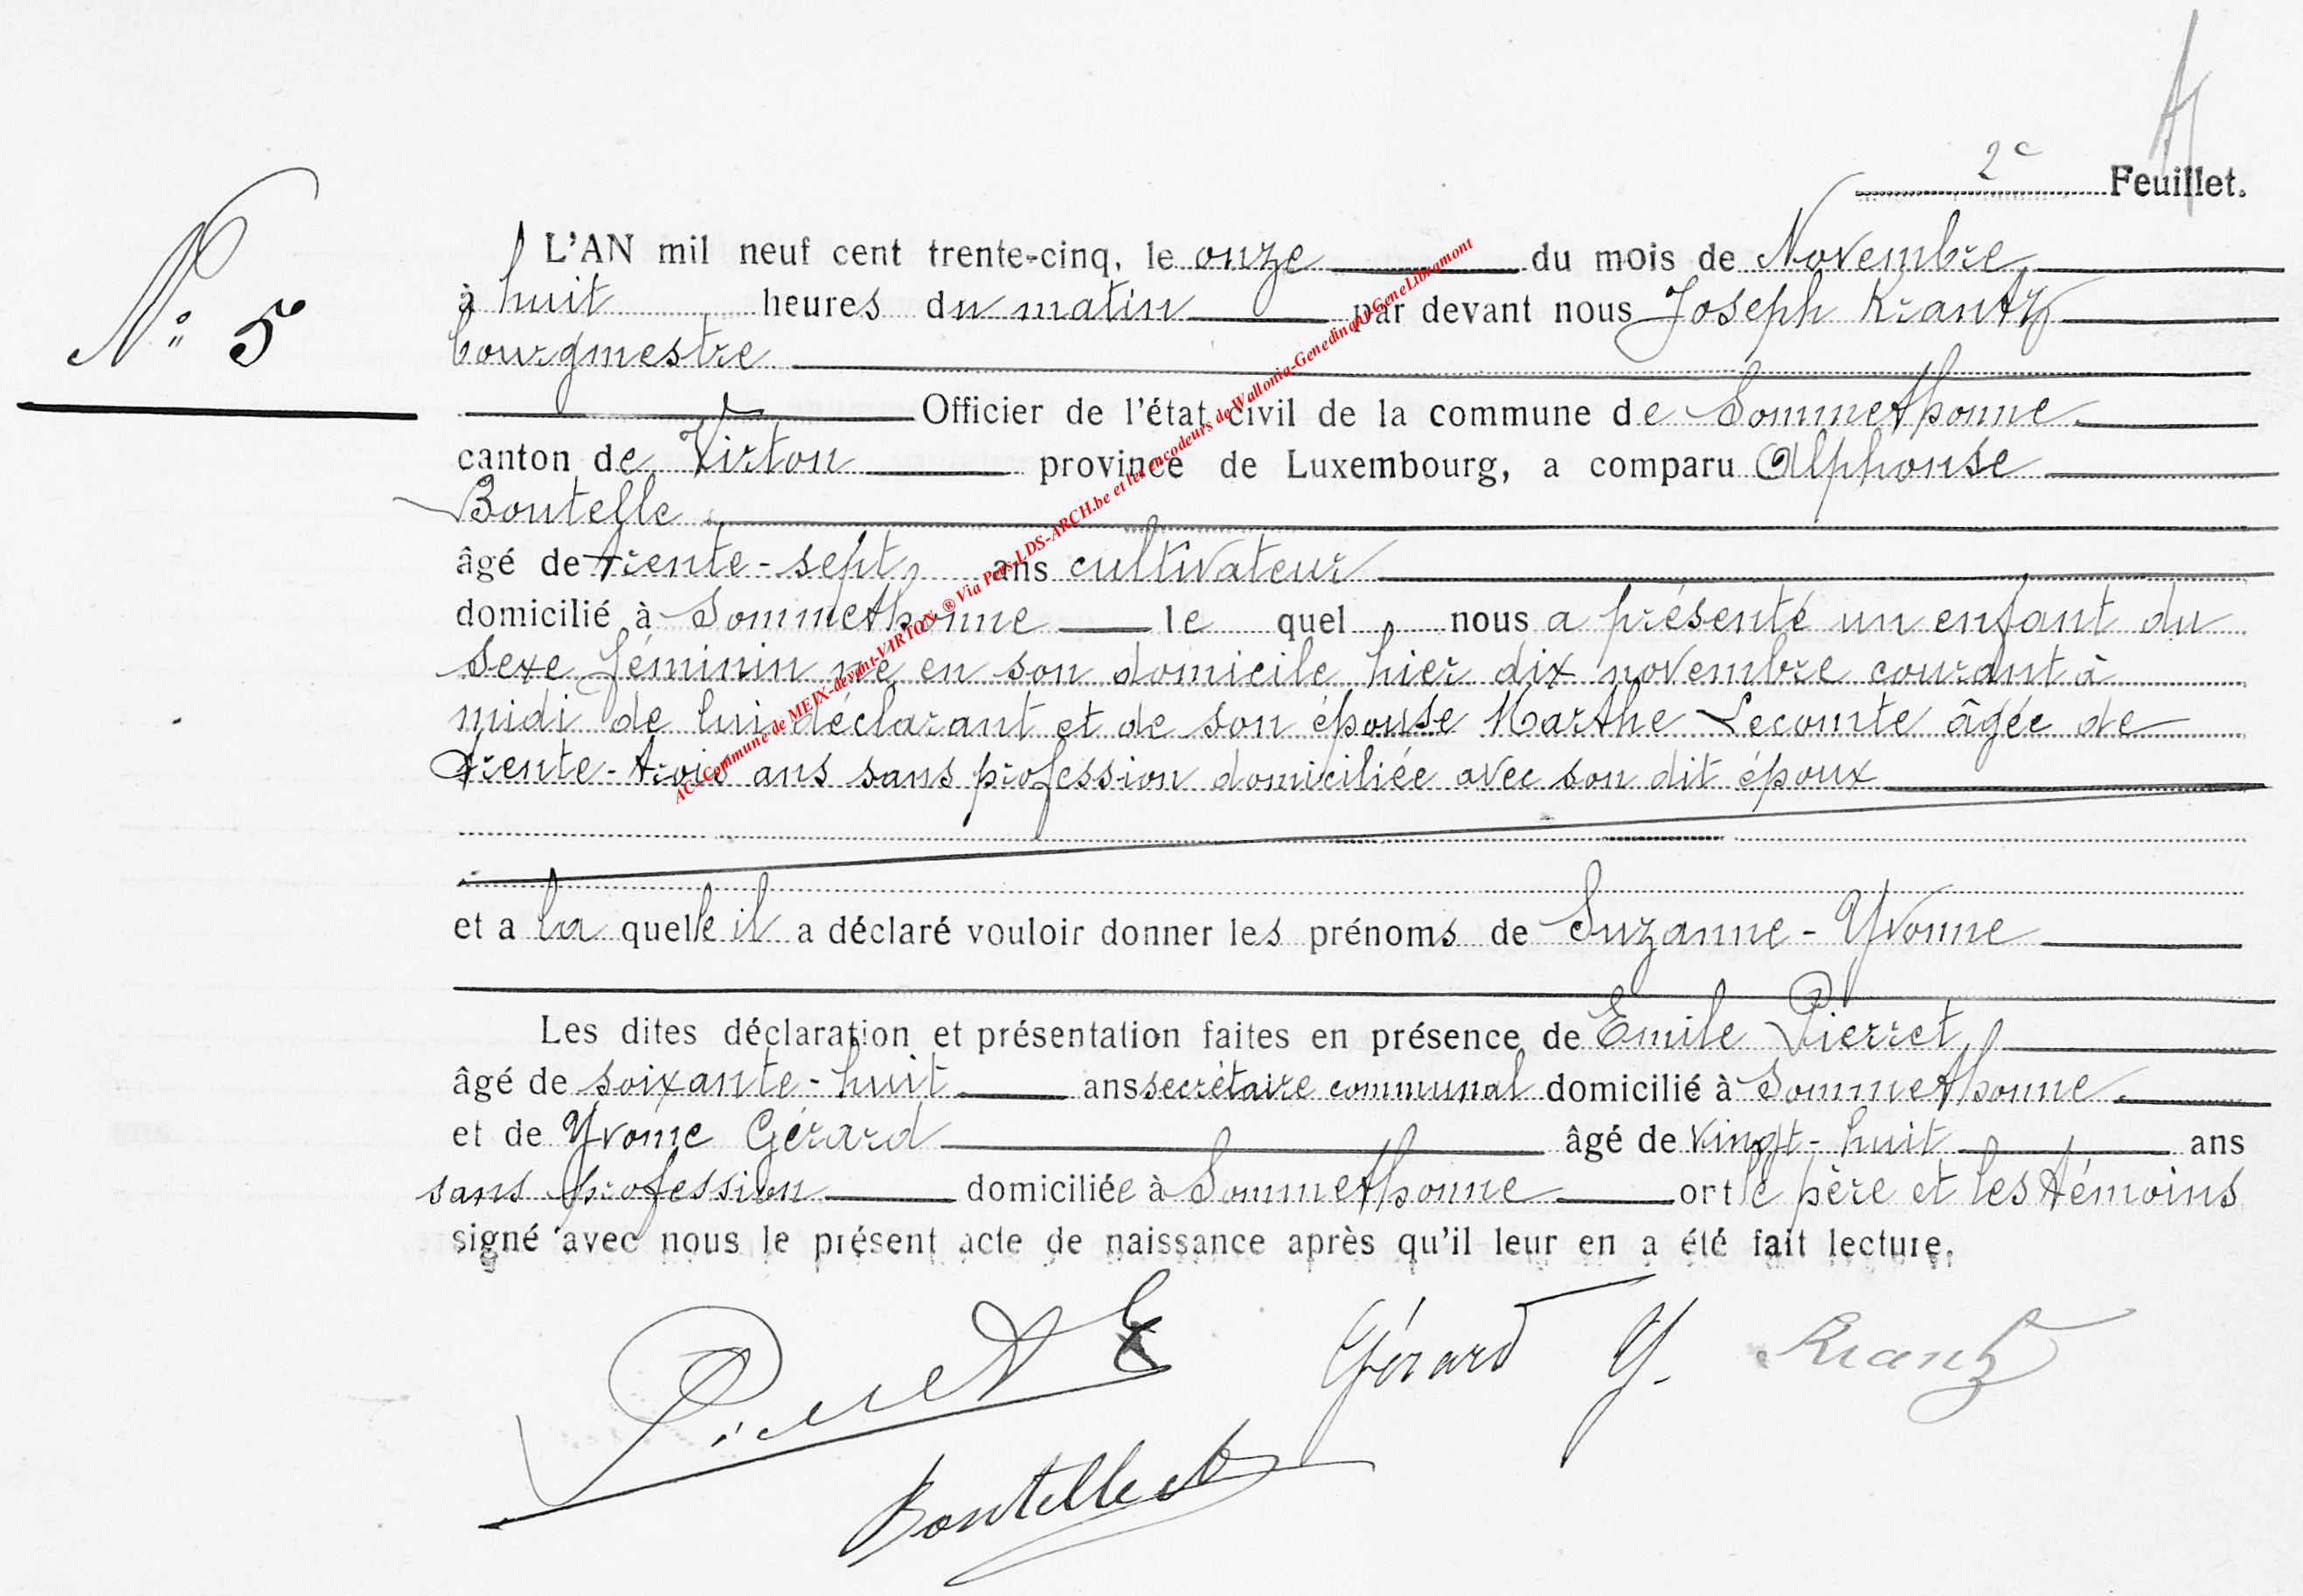 2e Feuillet.
N° 5
L'AN mil neuf cent trente-cinq, le onze du mois de Novembre
à huit heures du matin par devant nous Joseph Krantz
bourgmestre
Officier de l'état civil de la commune de Sommethonne
canton de Virton province de Luxembourg, a comparu Alphonse
Boutelle
âgé de trente-sept ans cultivateur
domicilié à Sommethonne le quel nous a présenté un enfant du
sexe féminin né en son domicile hier dix novembre courant à
midi de lui déclarant et de son épouse Marthe Lecomte âgée de
trente-trois ans sans profession domiciliée avec son dit époux
et a la quelle il a déclaré vouloir donner les prénoms de Suzanne-Yvonne
Les dites déclaration et présentation faites en présence de Emile Pierret
âgé de soixante-huit ans secrétaire communal domicilié à Sommethonne
et de Yvonne Gérard âgé de vingt-huit ans
sans profession domiciliée à Sommethonne ont le père et les témoins
signé avec nous le présent acte de naissance après qu'il leur en a été fait lecture.
Pierret E Gérard Y. Krantz
Boutelle A
AC-Commune de MEIX-devant-VIRTON ® Via Pers-LDS-ARCH.be et les encodeurs de Wallonia-Genedinant-GeneLibramont